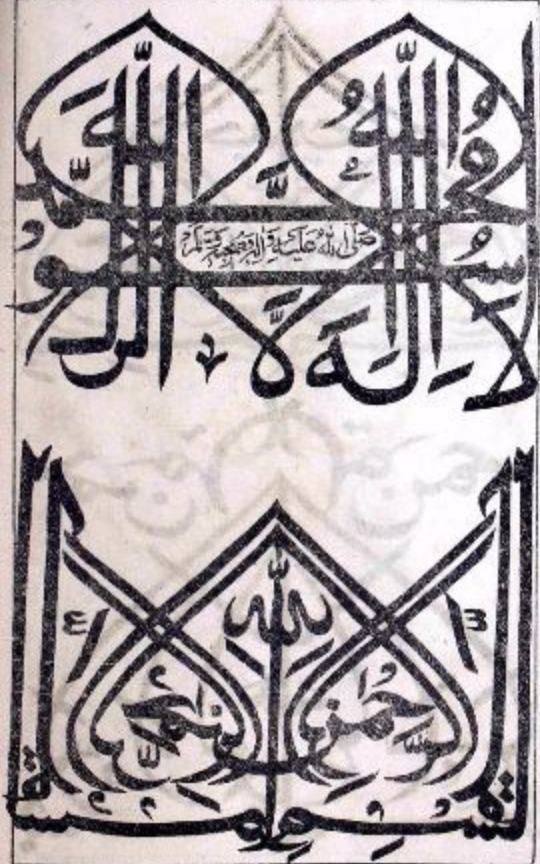 لَا إِلٰهَ إِلَّا اللهُ مُحَمَّدٌ رَسُولُ اللهِ
صَلَّى اللهُ عَلَيْهِ وَآلِهِ وَصَحْبِهِ وَسَلَّمَ
بِسْمِ اللهِ الرَّحْمٰنِ الرَّحِيمِ